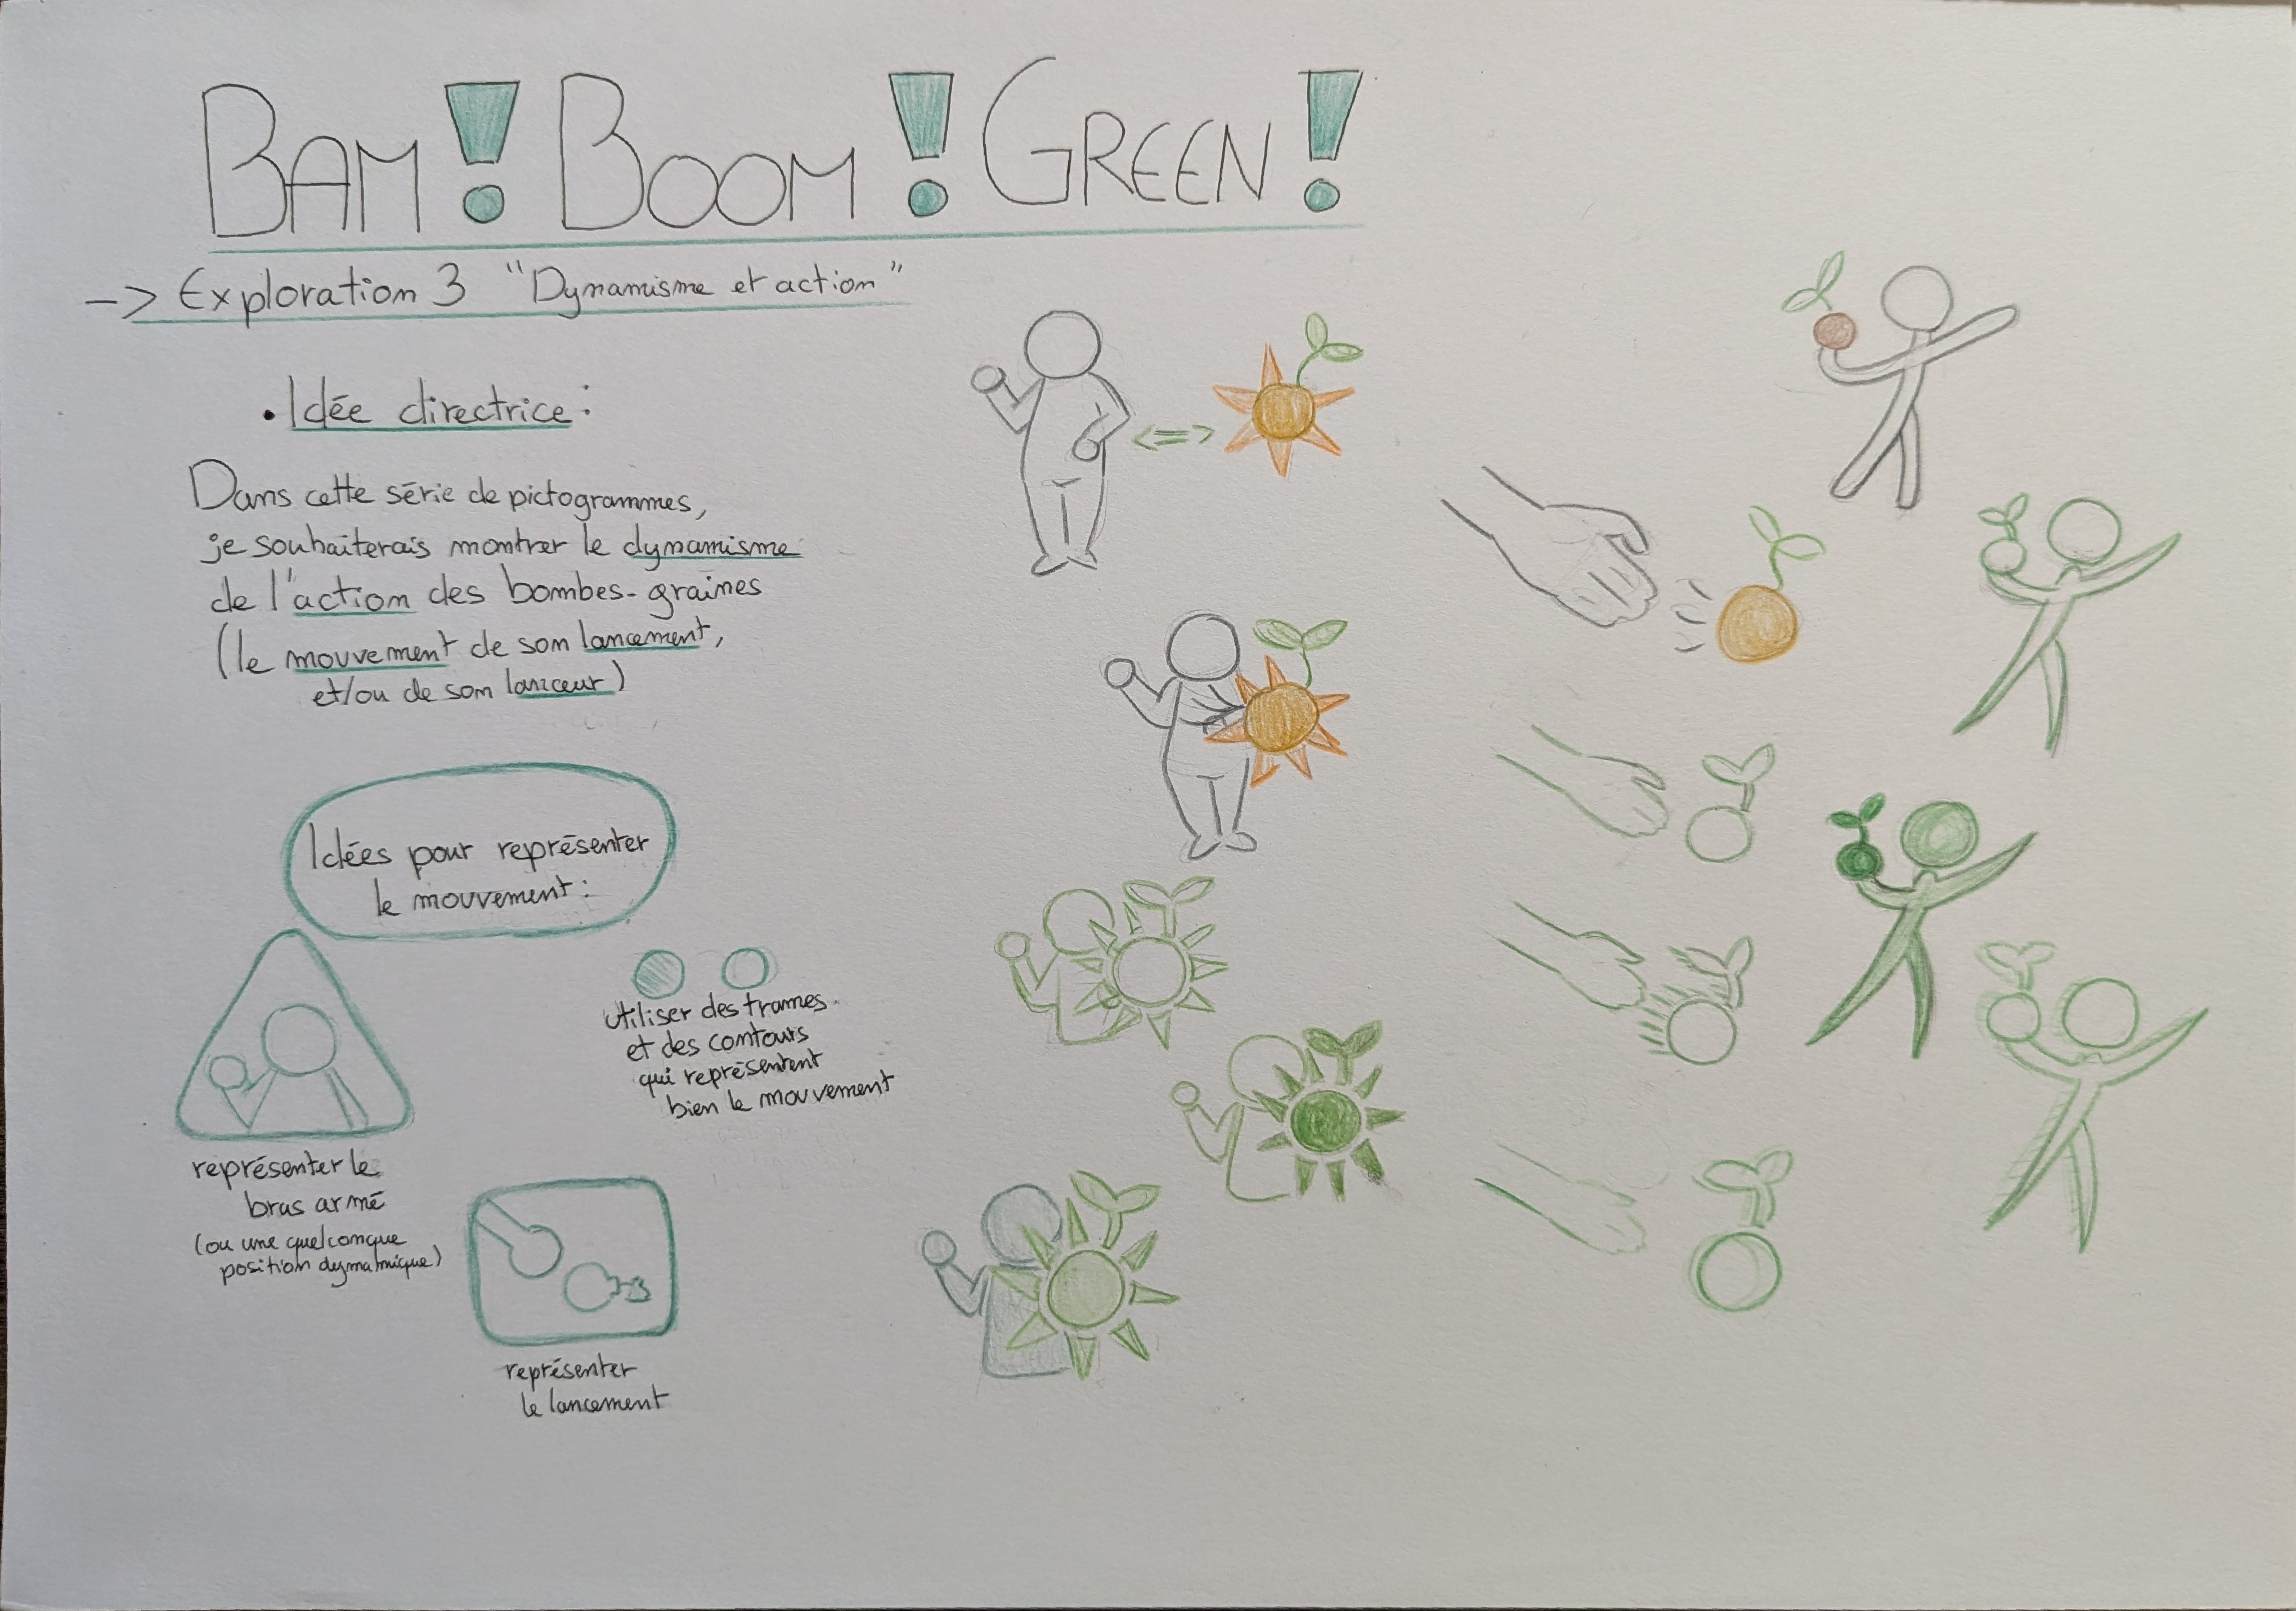 BAM! BOOM! GREEN!
-> Exploration 3 "Dynamisme et action"
• Idée directrice :
Dans cette série de pictogrammes,
je souhaiterais montrer le dynamisme
de l'action des bombes-graines
(le mouvement de son lancement,
et/ou de son lanceur)
Idées pour représenter
le mouvement :
utiliser des trames
et des contours
qui représentent
bien le mouvement
représenter le
bras armé
(ou une quelconque
position dynamique)
représenter
le lancement